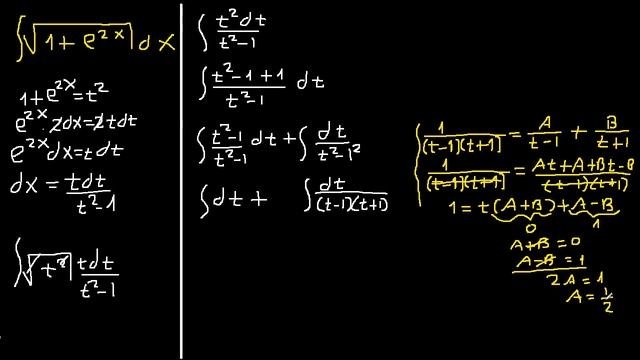 ∫√(1+e^(2x)) dx
1+e^(2x)=t²
e^(2x)·2dx=2tdt
e^(2x)dx=tdt
dx=tdt/(t²-1)
∫√(t²) tdt/(t²-1)
∫t²dt/(t²-1)
∫(t²-1+1)/(t²-1) dt
∫(t²-1)/(t²-1) dt+∫dt/(t²-1²)
∫dt+ ∫dt/((t-1)(t+1))
∫1/((t-1)(t+1))=A/(t-1)+B/(t+1)
1/((t-1)(t+1))=(At+A+Bt-B)/((t-1)(t+1))
1=t(A+B)+A-B
0 1
A+B=0
A-B=1
2A=1
A=1/2